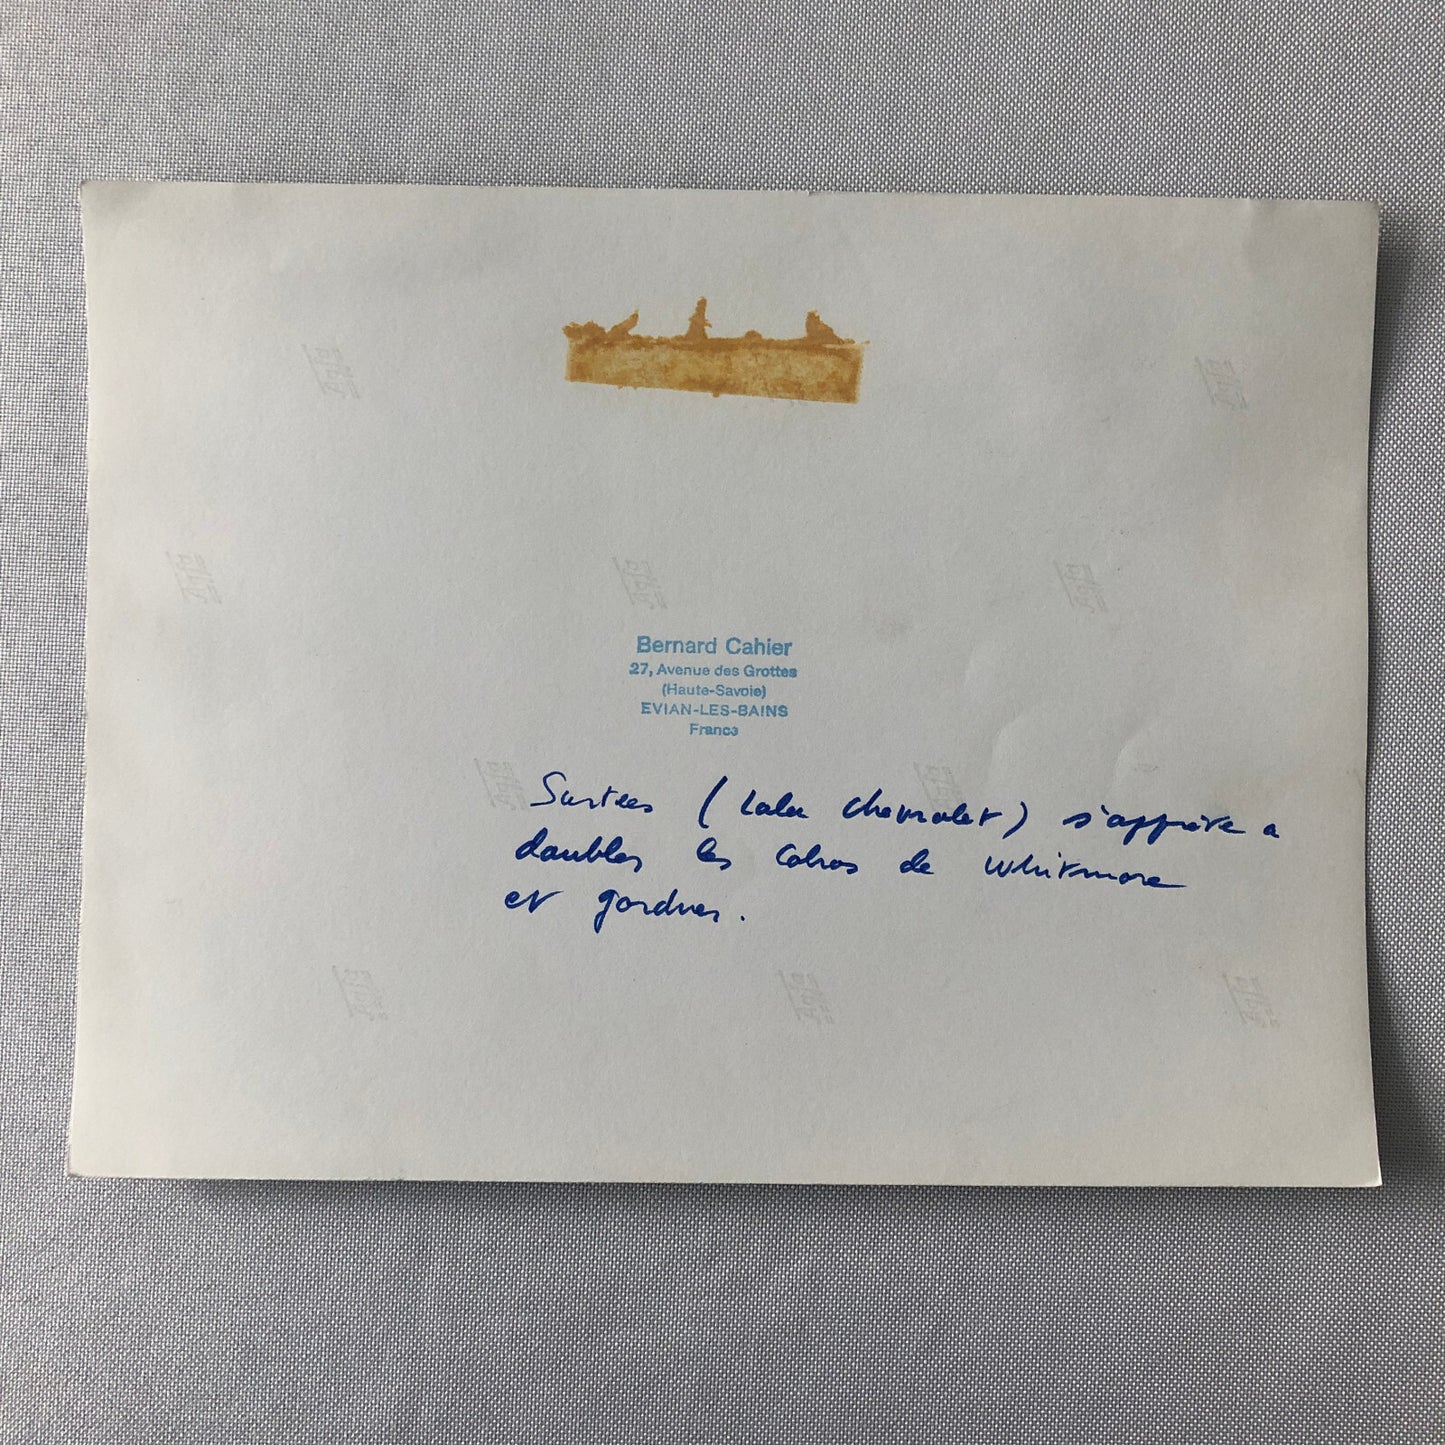 Bernard Cahier
27, Avenue des Grottes
(Haute-Savoie)
EVIAN-LES-BAINS
France
Surtees (Lola Chevrolet) s'apprète a
doubler les Cobras de Whitmore
et gardner.